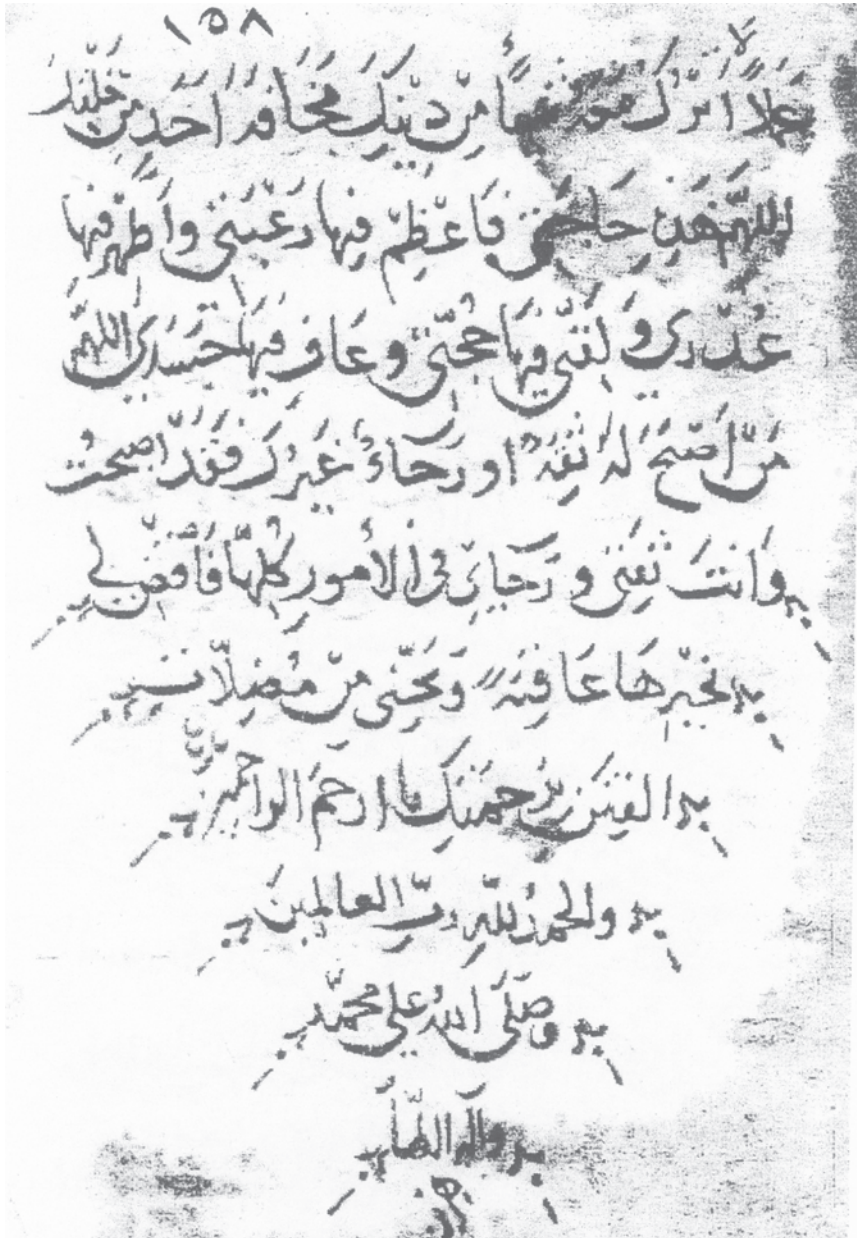 ١٥٨
عَمَلاً لا أَتْرُكُ مَعَهُ شَيْئاً مِنْ دِينِكَ مَخَافَةَ اَحَدٍ مِنْ خَلْقِكَ
اللّهُمَّ هَذِهِ حَاجَتِى فَاَعْظِمْ فِيهَا رَغْبَتِى وَاَظْهِرْ فِيهَا
عُذْرِى وَ لَقِّنِّى فِيهَا حُجَّتِى وَ عَافِ فِيهَا جَسَدِى اَللّهُمَّ
مَنْ اَصْبَحَ لَهُ ثِقَةٌ اَو رَجَاءٌ غَيْرُكَ فَقَدْ اَصْبَحْتُ
وَاَنْتَ ثِقَتِى وَ رَجَائِى فِى الأُمورِ كُلِّهَا فَاقْضِ لِى
بِخَيْرِهَا عَاقِبَةً وَ نَجِّنِى مِنْ مُضِلّاَتِ
الفِتَنِ بِرَحْمَتِكَ يَا اَرْحَمَ الرَّاحِمِينَ
والحمدُ للّهِ رَبِّ العالمينَ
وَصَلَّى اللهُ على محمّدٍ
وآلِهِ